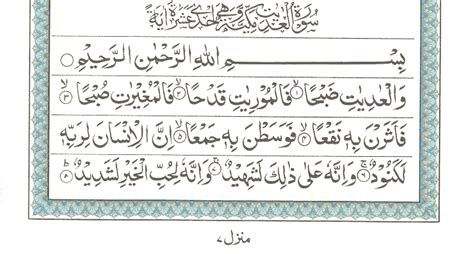 سُوْرَةُ الْعٰدِيٰتِ مَكِّيَّةٌ وَّهِيَ اِحْدٰى عَشَرَةَ اٰيَةً
بِسْمِ اللّٰهِ الرَّحْمٰنِ الرَّحِيْمِ
وَالْعٰدِيٰتِ ضَبْحًا ۙ‏۱ فَالْمُوْرِيٰتِ قَدْحًا ۙ‏۲ فَالْمُغِيْرٰتِ صُبْحًا ۙ‏۳
فَاَثَرْنَ بِهٖ نَقْعًا ۙ‏۴ فَوَسَطْنَ بِهٖ جَمْعًا ۙ‏۵ اِنَّ الْاِنْسَانَ لِرَبِّهٖ
لَكَنُوْدٌ ۚ‏۶ وَاِنَّهٗ عَلٰى ذٰلِكَ لَشَهِيْدٌ ۚ‏۷ وَاِنَّهٗ لِحُبِّ الْخَيْرِ لَشَدِيْدٌ ؕ‏۸
منزل ۷